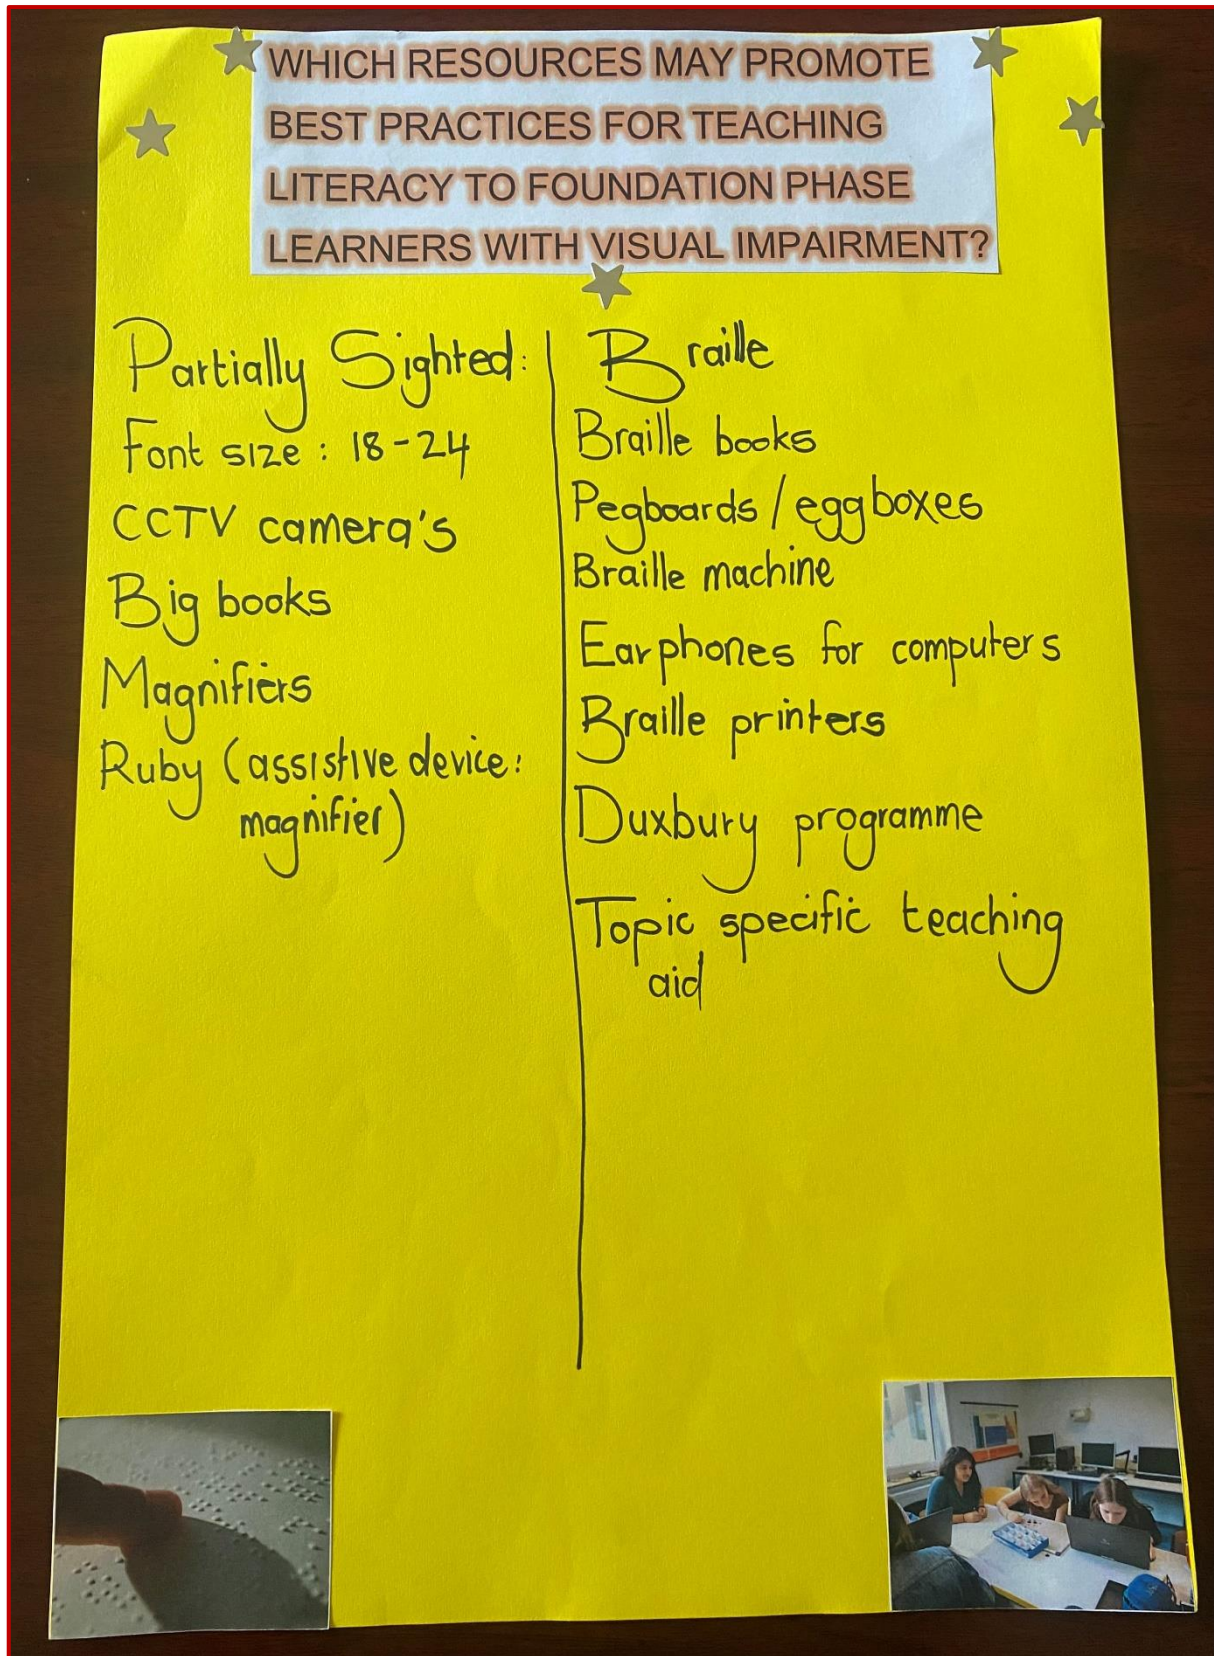 WHICH RESOURCES MAY PROMOTE
BEST PRACTICES FOR TEACHING
LITERACY TO FOUNDATION PHASE
LEARNERS WITH VISUAL IMPAIRMENT?
Partially Sighted:
Font size : 18-24
CCTV camera's
Big books
Magnifiers
Ruby (assistive device:
magnifier)
Braille
Braille books
Pegboards / eggboxes
Braille machine
Earphones for computers
Braille printers
Duxbury programme
Topic specific teaching
aid